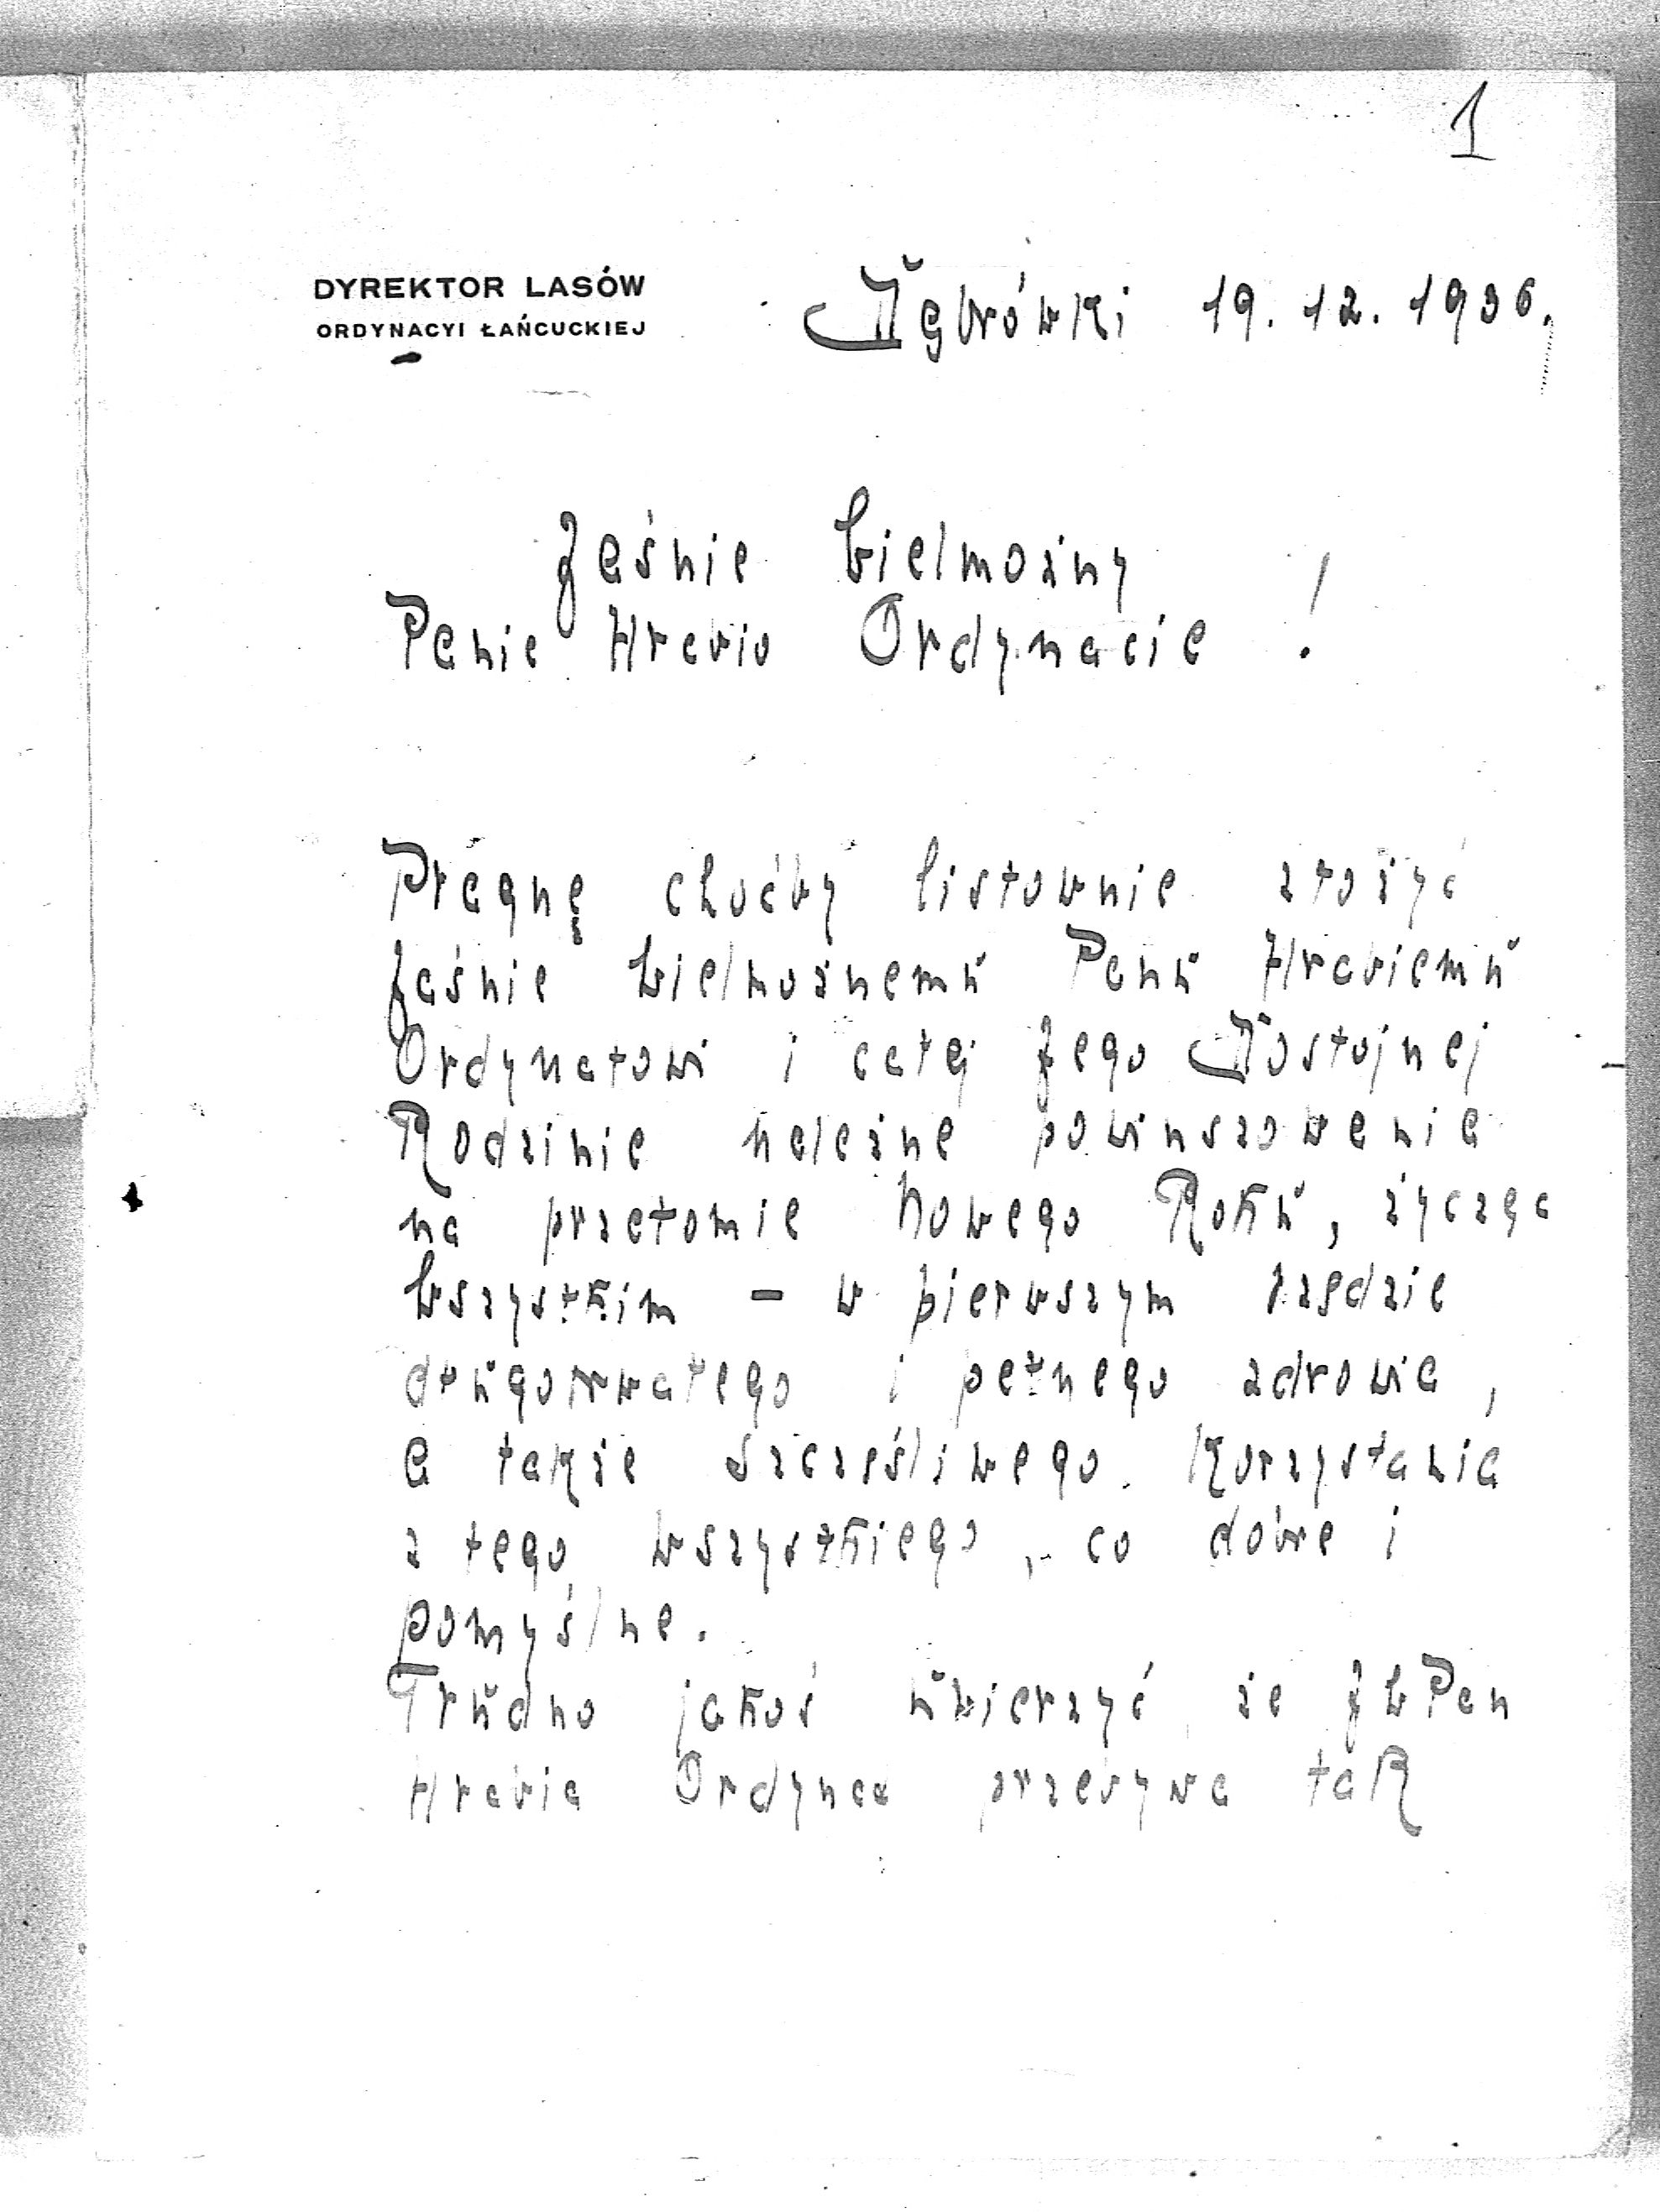 1
DYREKTOR LASÓW
ORDYNACYI ŁAŃCUCKIEJ
Dąbrówki 19.12.1936.
Jaśnie Wielmożny
Panie Hrabio Ordynacie !
Pragnę choćby listownie złożyć
Jaśnie Wielmożnemu Panu Hrabiemu
Ordynatowi i całej Jego Dostojnej
Rodzinie należne powinszowania
na przełomie Nowego Roku, życząc
Wszystkim - w pierwszym rzędzie
długotrwałego i pełnego zdrowia,
a także szczęśliwego korzystania
z tego wszystkiego, co dobre i
pomyślne.
Trudno jakoś uwierzyć że JWPan
Hrabia Ordynat przebywa tak